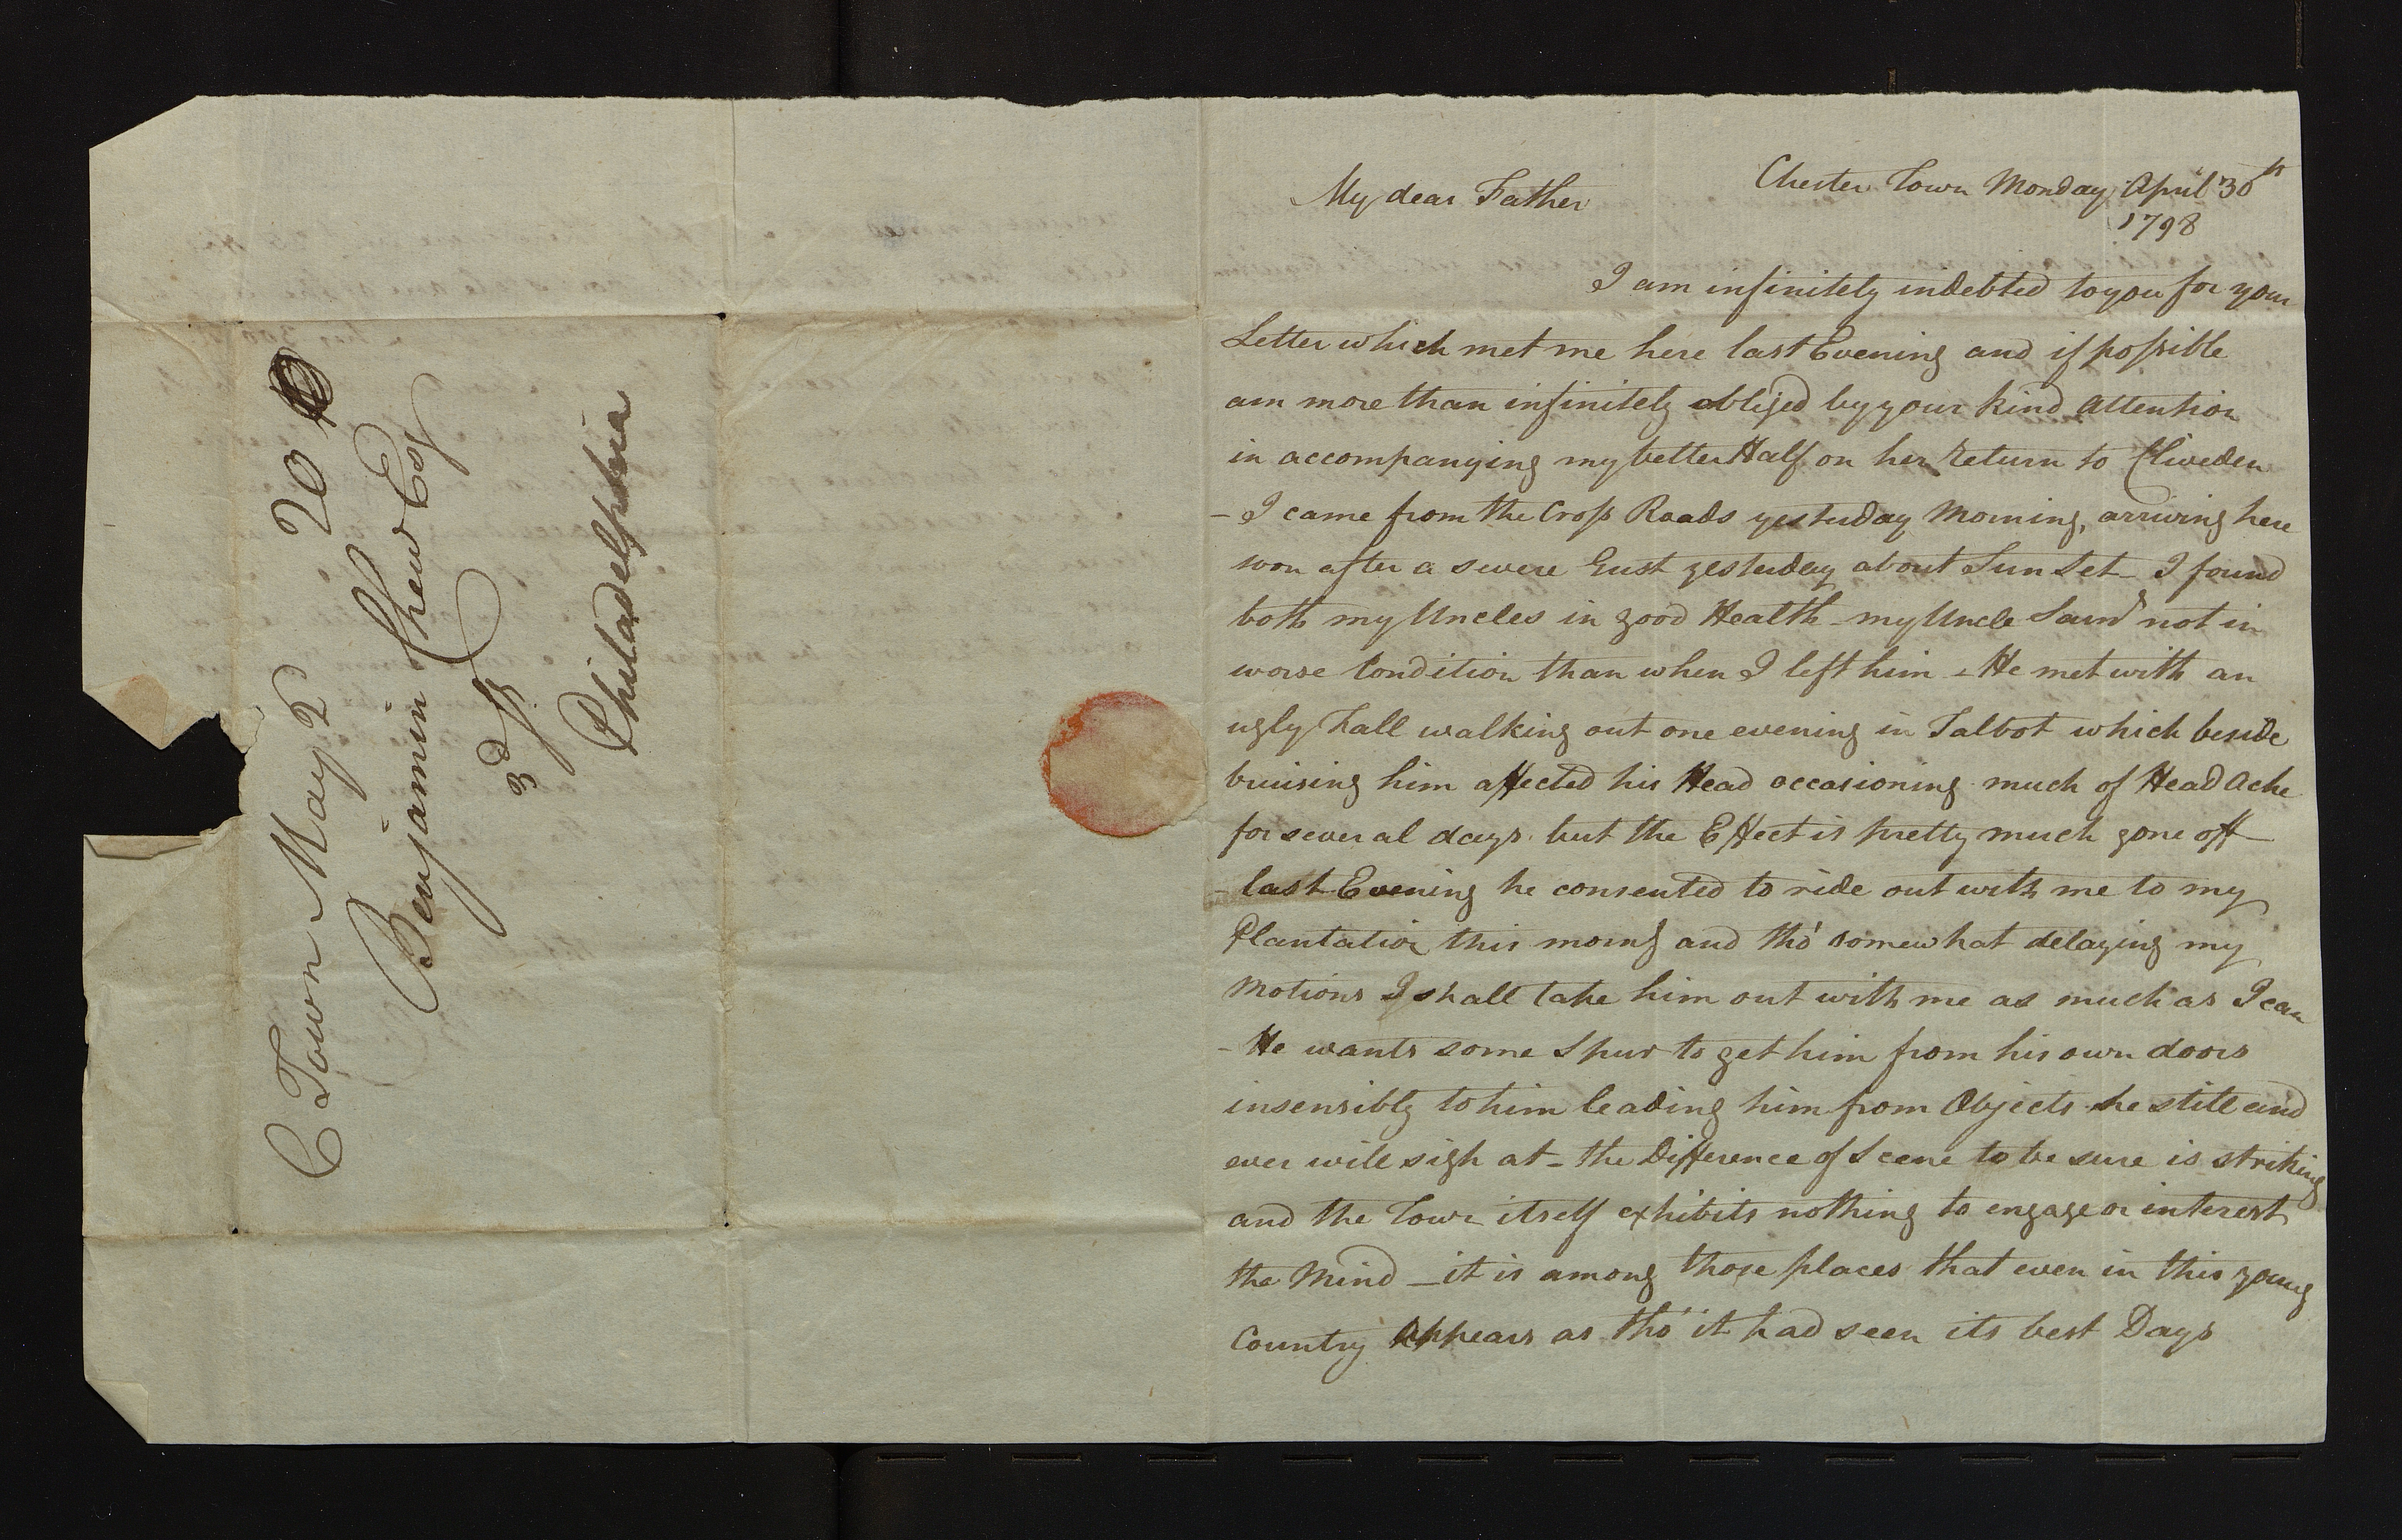 C Town May 2 20
Benjamin Chew Esqr
3d St
Philadelphia
My dear Father
Chester Town Monday April 30th
1798
I am infinitely indebted to you for your
Letter which met me here last Evening and if possible
am more than infinitely obliged by your kind Attention
in accompanying my better Half on her return to Cliveden
- I came from the Cross Roads yesterday Morning, arriving here
soon after a severe Gust yesterday about Sun Set - I found
both my Uncles in good Health - my Uncle Saml not in
worse Condition than when I left him - He met with an
ugly Fall walking out one evening in Talbot which beside
bruising him affected his Head occasioning much of Head Ache
for several days but the Effect is pretty much gone off
- last Evening he consented to ride out with me to my
Plantation this morng and tho' somewhat delaying my
Motions I shall take him out with me as much as I can
- He wants some Spur to get him from his own doors
insensibly to him leading him from Objects he still and
ever will sigh at - the Difference of Scene to be sure is striking
and the Town itself exhibits nothing to engage or interest
the Mind - it is among those places that even in this young
Country Appears as tho' it had seen its best Days